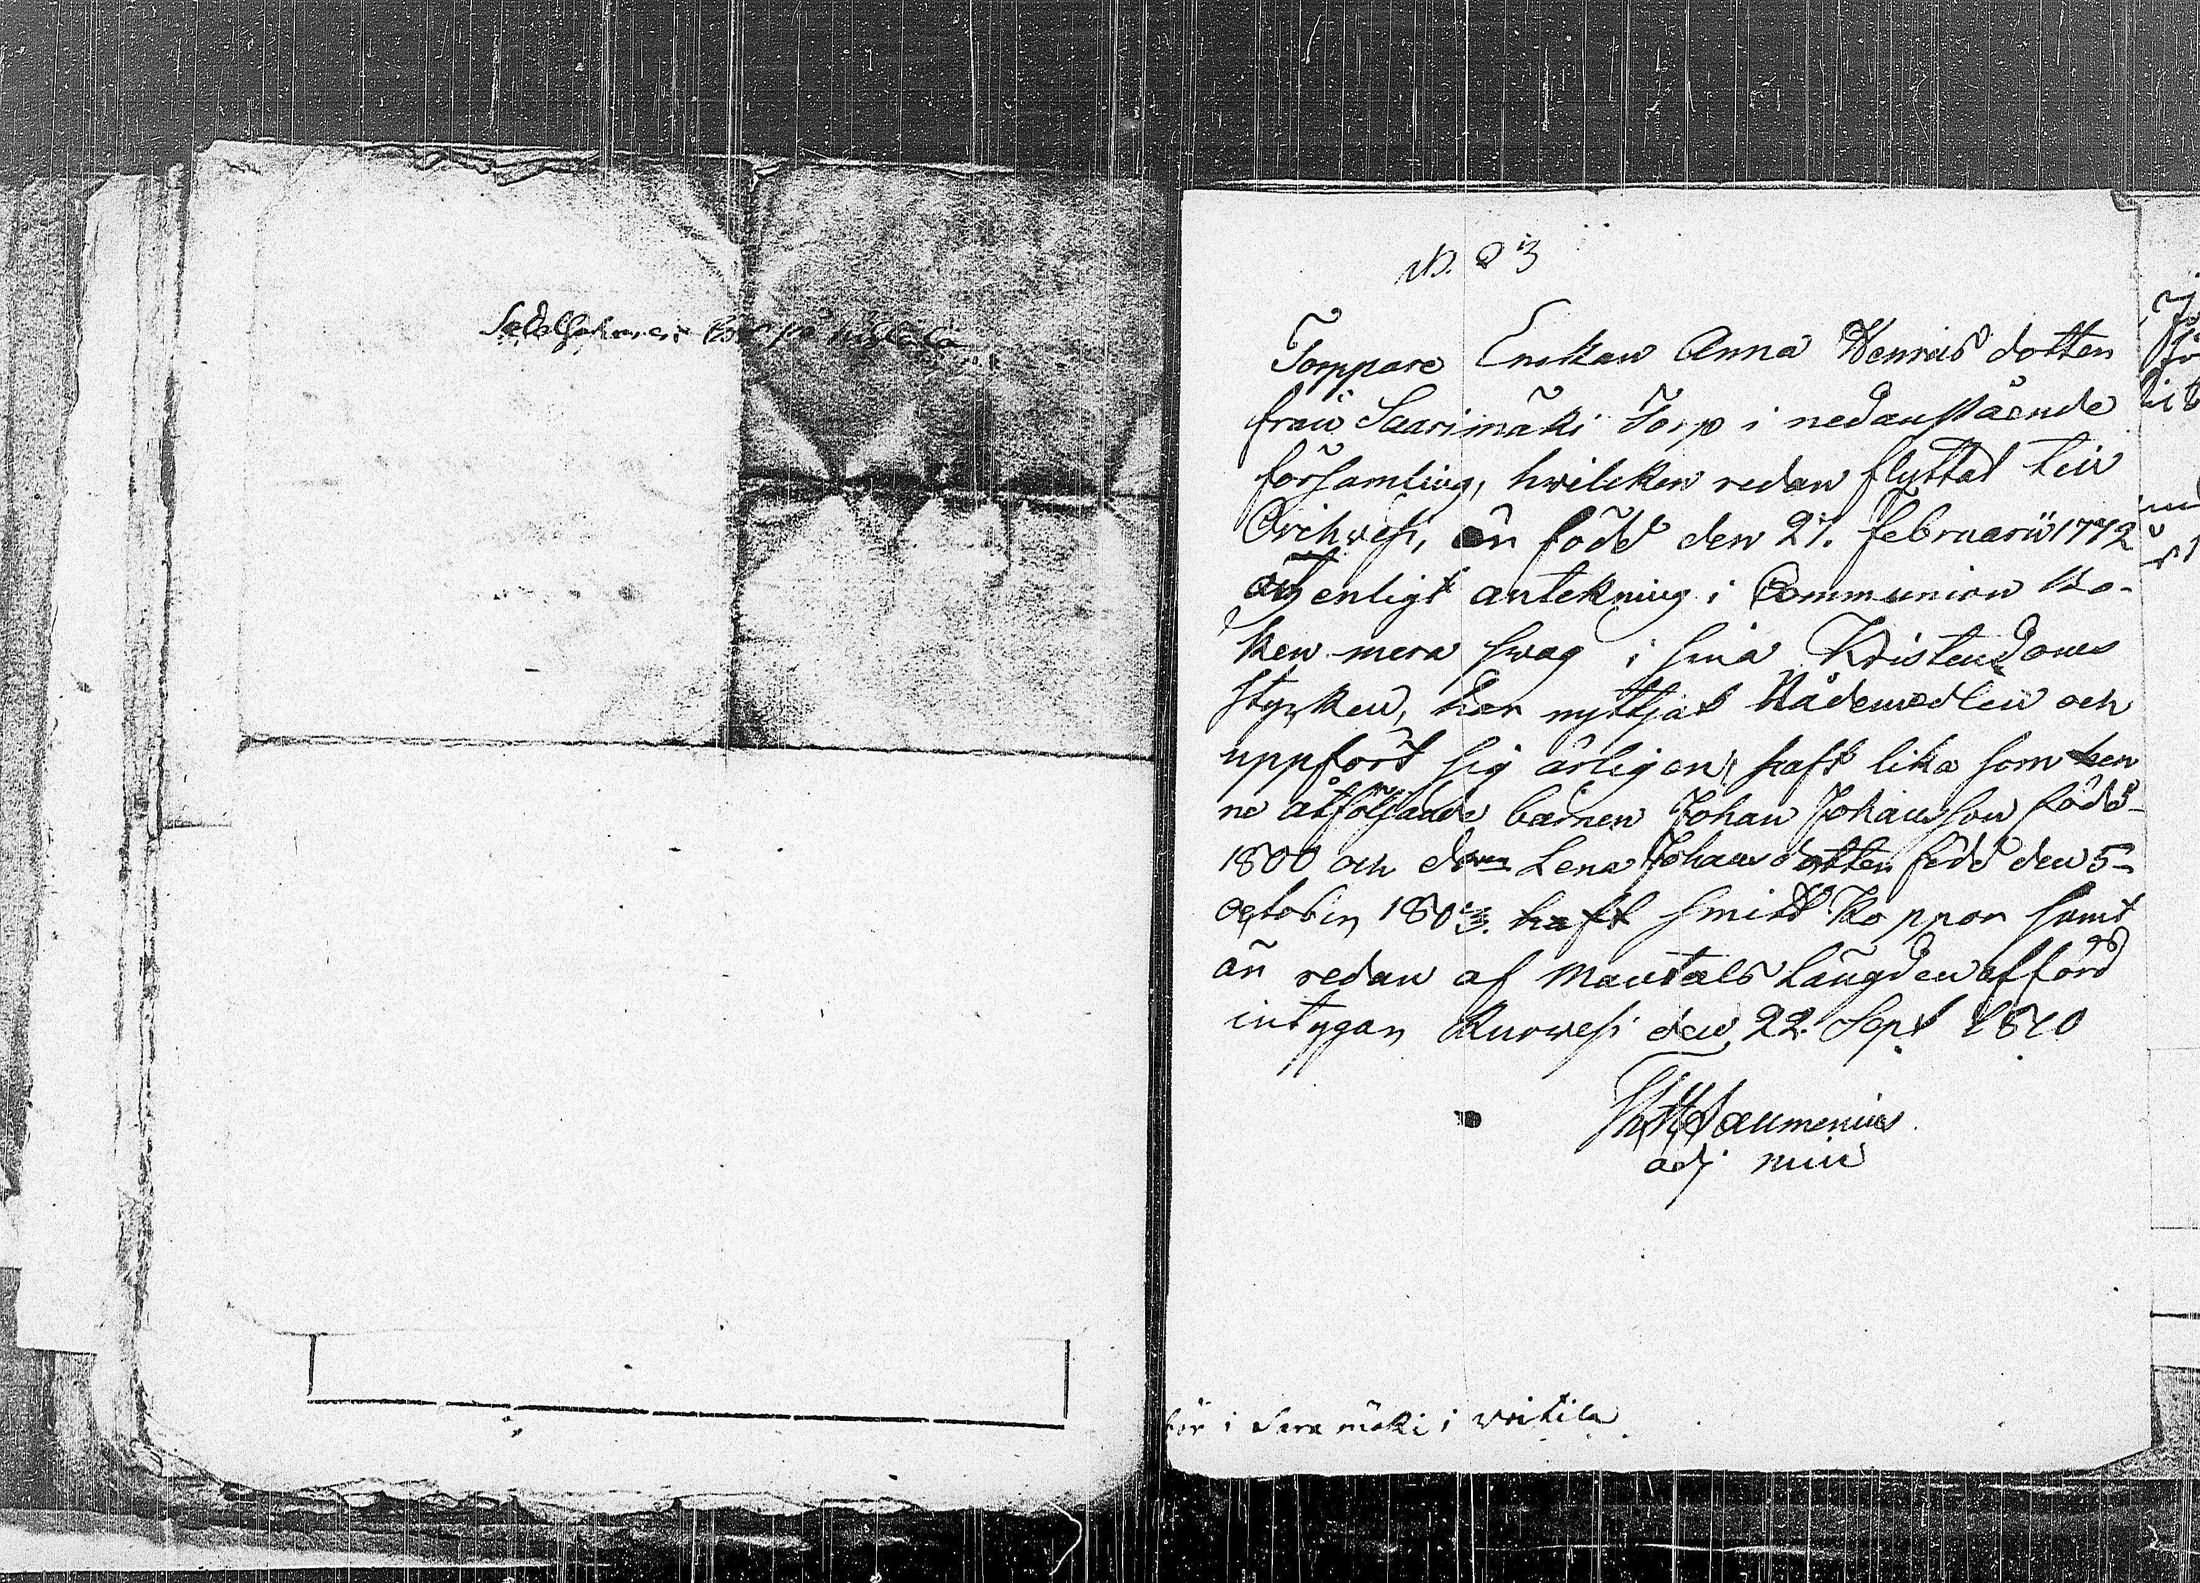 N. 23
Torppare Enckan Anna Henrics dotter
från Saarimäki Torp i nedanstående
församling, hwilcken redan flyttat till
Orihvesi, än född den 27. Februarii 1772
enligt antekning i Communion Bo-
ken mera swag i sina Kristendoms
stycken, har nyttjat Nådemedlen och
uppfört sig ärligen, haft lika som hen
ne åtföljande barnen Johan Johansson född
1800 och Lena Johans dotter född den 5
October 1803. haft smitt Koppor samt
än redan af Mantals Längden afförd
intygar Ruovesi den 22. Sept 1810
adj. min
för i Saramäki i Writila